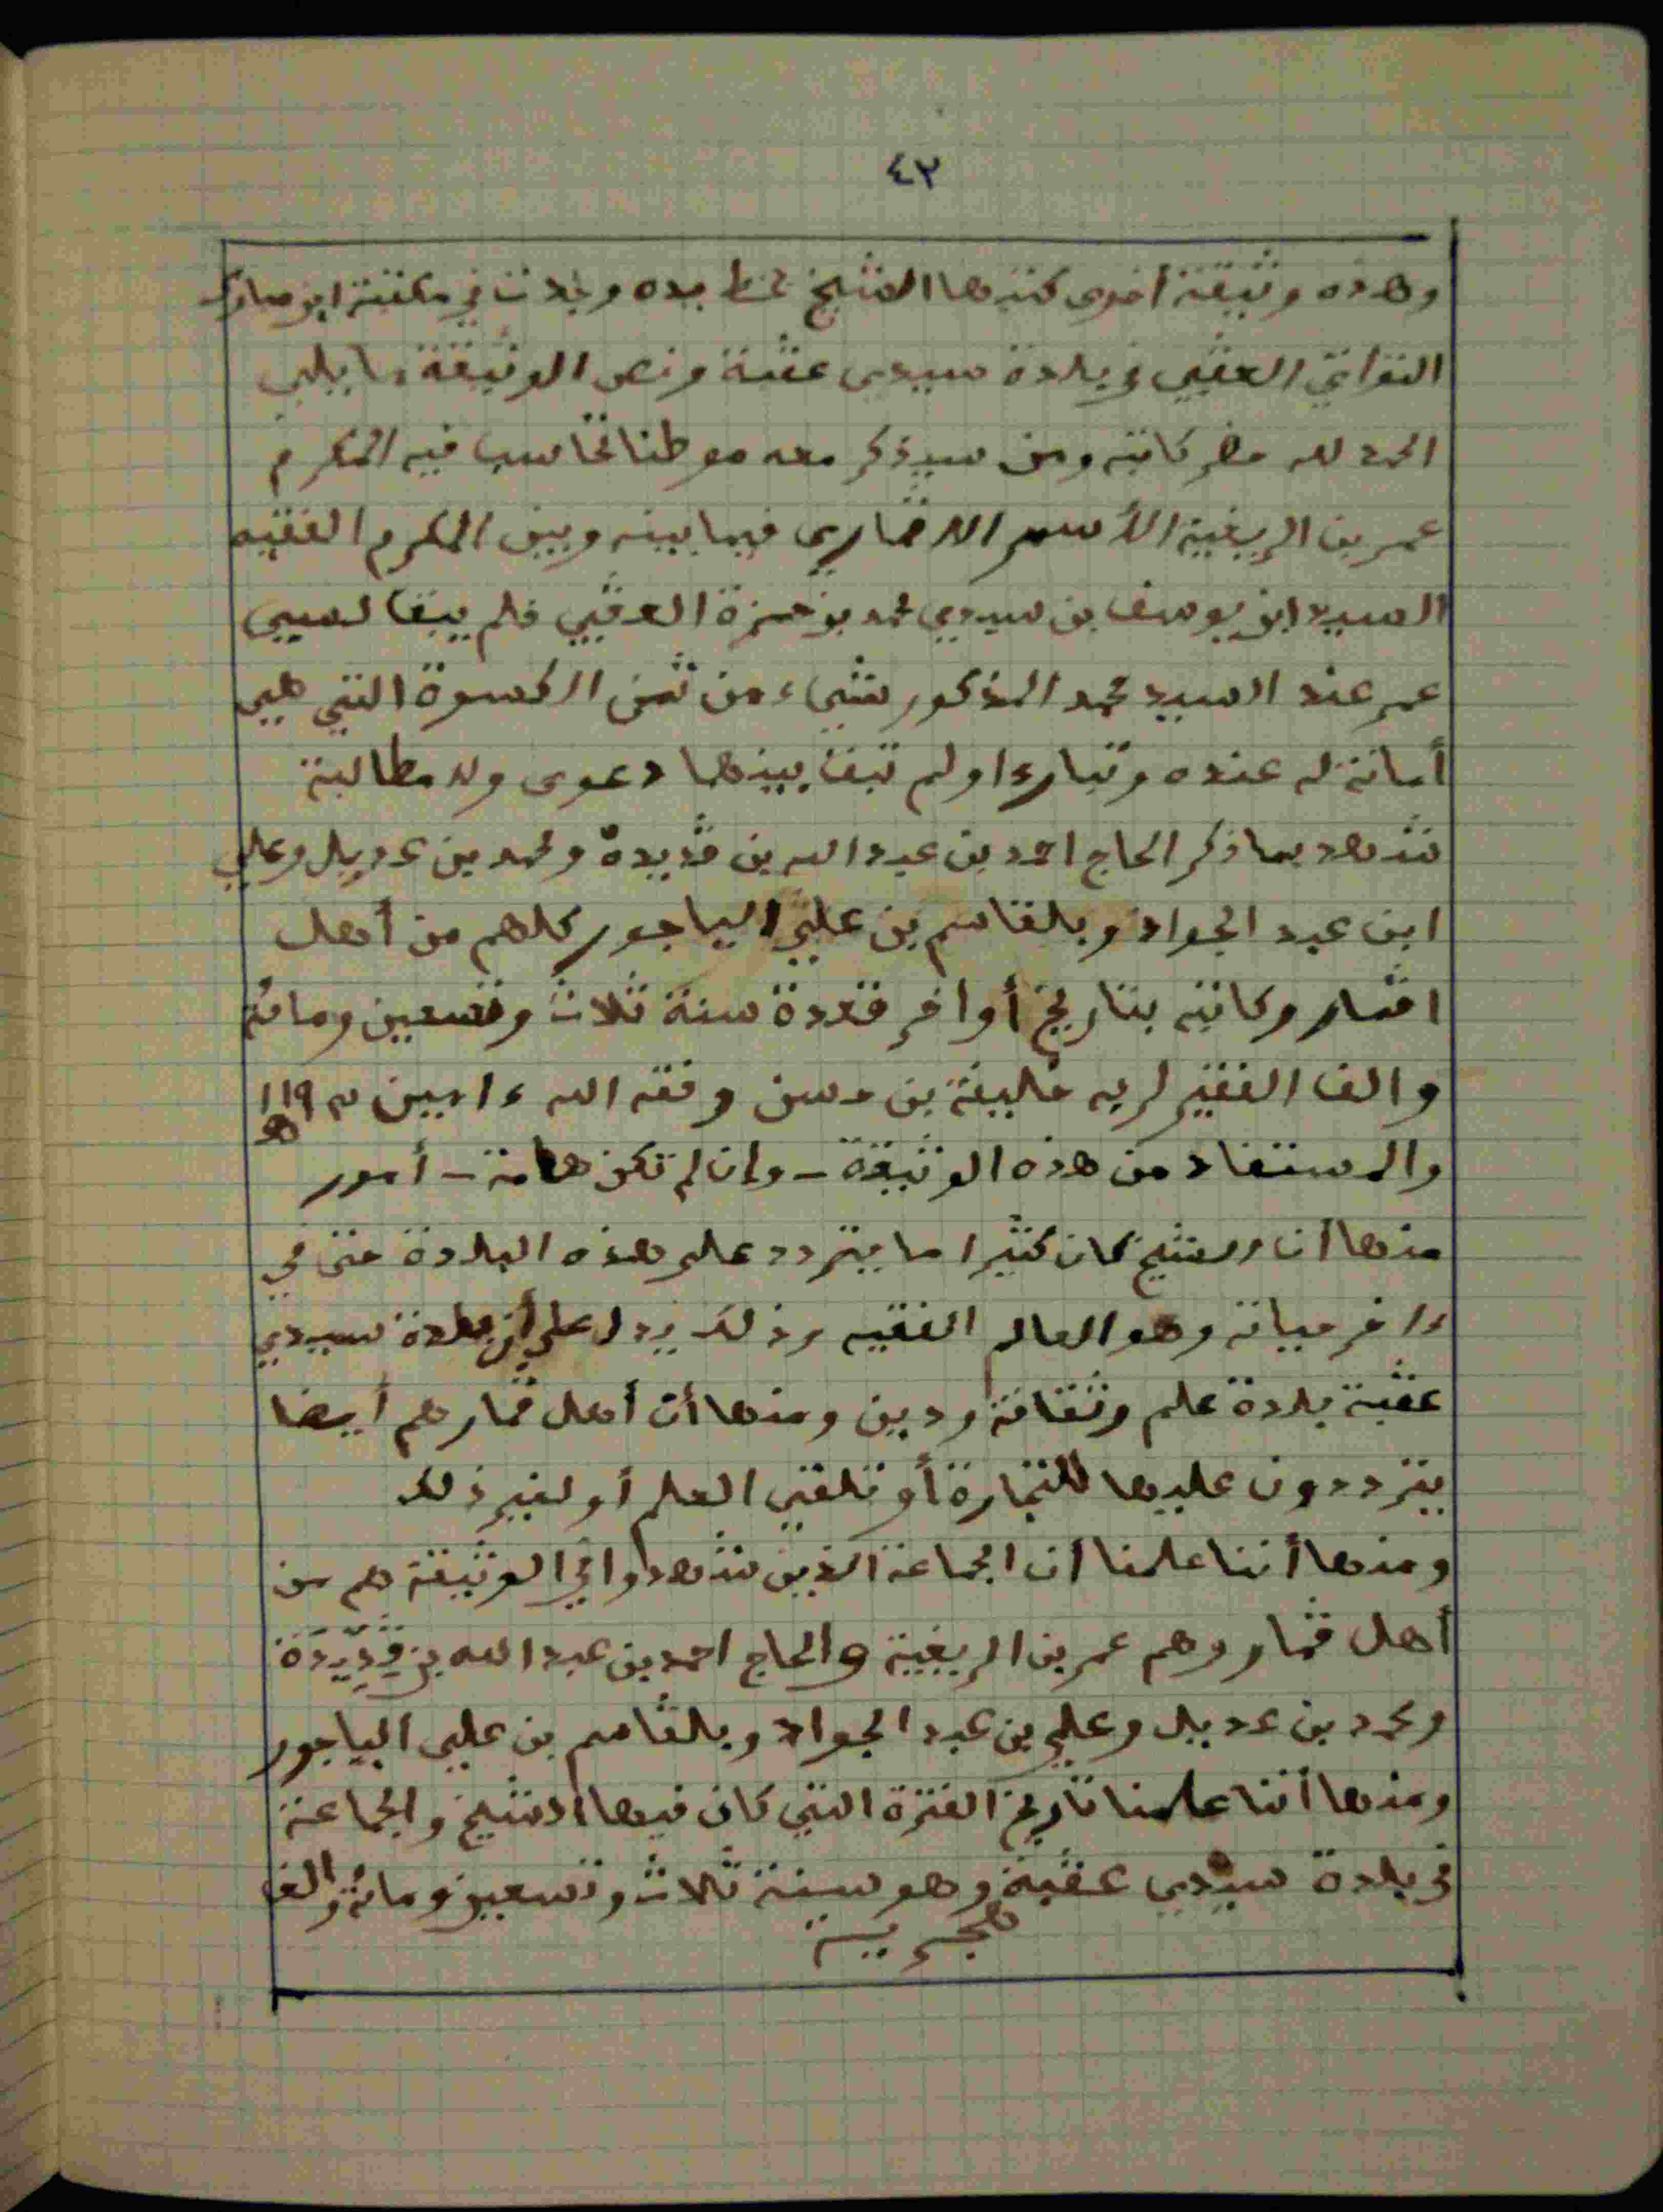 ٤٢
وهذه وثيقة أخرى كتبها الشيخ بخط يده وجدت في مكتبة ابن مبارك
التواتي العقبي في بلدة سيدي عقبة ونص الوثيقة ما يلي
الحمد لله حضر كاتبه ومن سيذكر معه موطنا تحاسب فيه المكرم
عمر بن الريغية الأسمر الاقماري فيما بينه وبين المكرم الفقيه
السيد ابن يوسف بن سيدي محمد بوحمزة العقبي فلم يبقا لسيي
عمر عند السيد محمد المذكور شيء من ثمن الكسوة التي هي
أمانة له عنده وتبارءا ولم تبقا بينهما دعوى ولا مطالبة
شهد بما ذكر الحاج احمد بن عبد الله بن قديدة ومحمد بن عديل وعلي
ابن عبد الجواد وبلقاسم بن علي الياجور كلهم من أهل
اقمار وكاتبه بتاريخ أواخر قعدة سنة ثلاث وتسعين ومائة
والف الفقير لربه خليفة بن حسن وفقه الله ءامين ١١٩٣
هـ
والمستفاد من هذه الوثيقة - وإن لم تكن هامة - أمور
منها أن الشيخ كان كثيرا ما يتردد على هذه البلدة حتى في
ءاخر حياته وهو العالم الفقيه وذلك يدل على أن بلدة سيدي
عقبة بلدة علم وثقافة ودين ومنها أن أهل قمار هم أيضا
يترددون عليها للتجارة أو تلقي العلم أو لغير ذلك
ومنها أننا علمنا أن الجماعة الذين شهدوا في الوثيقة هم من
أهل قمار وهم عمر بن الريغية والحاج احمد بن عبد الله بن قديدة
ومحمد بن عديل وعلي بن عبد الجواد وبلقاسم بن علي الياجور
ومنها أننا علمنا تاريخ الفترة التي كان فيها الشيخ والجماعة
في بلدة سيدي عقبة وهو سنة ثلاث وتسعين ومائة والف
هجرية